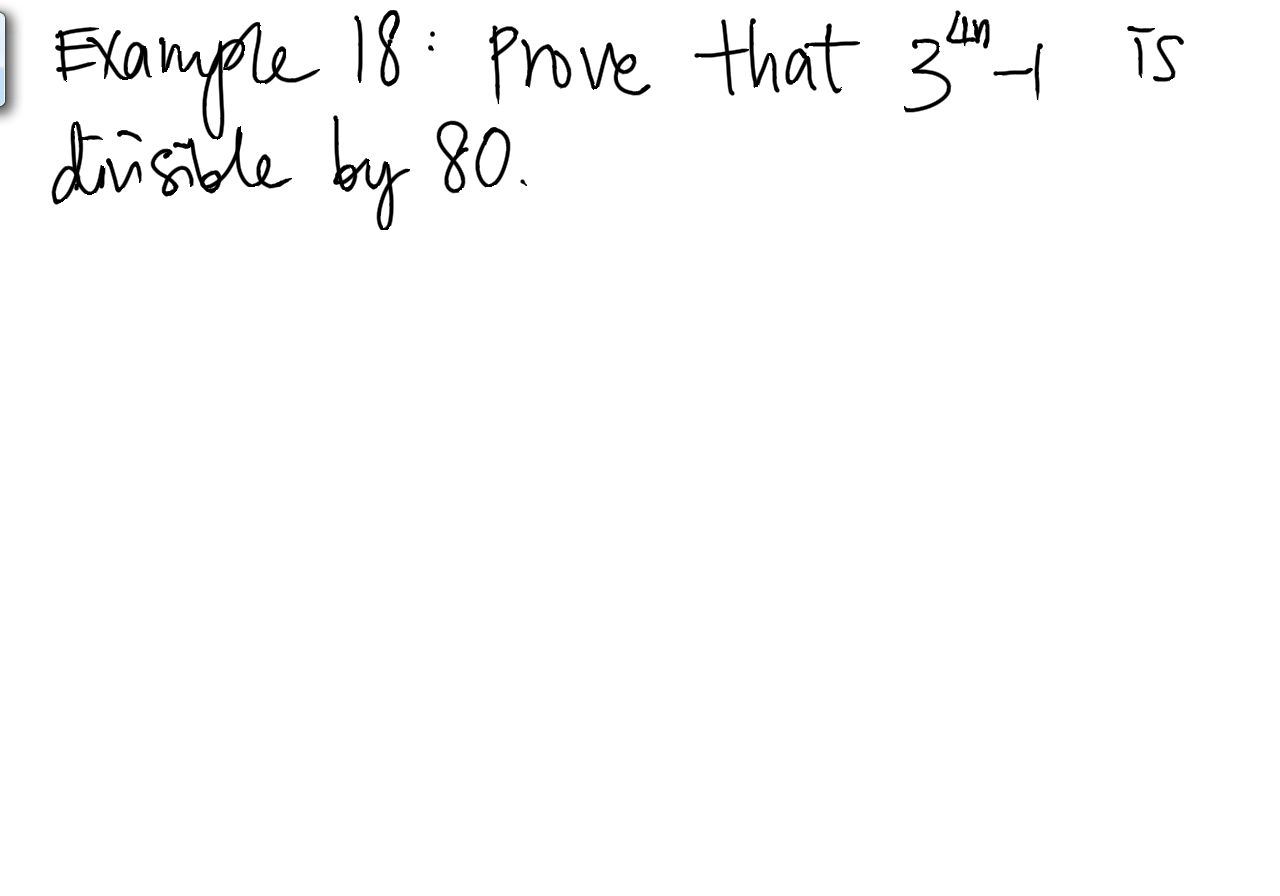 Example 18: Prove that 3^{4n}-1 is
divisible by 80.